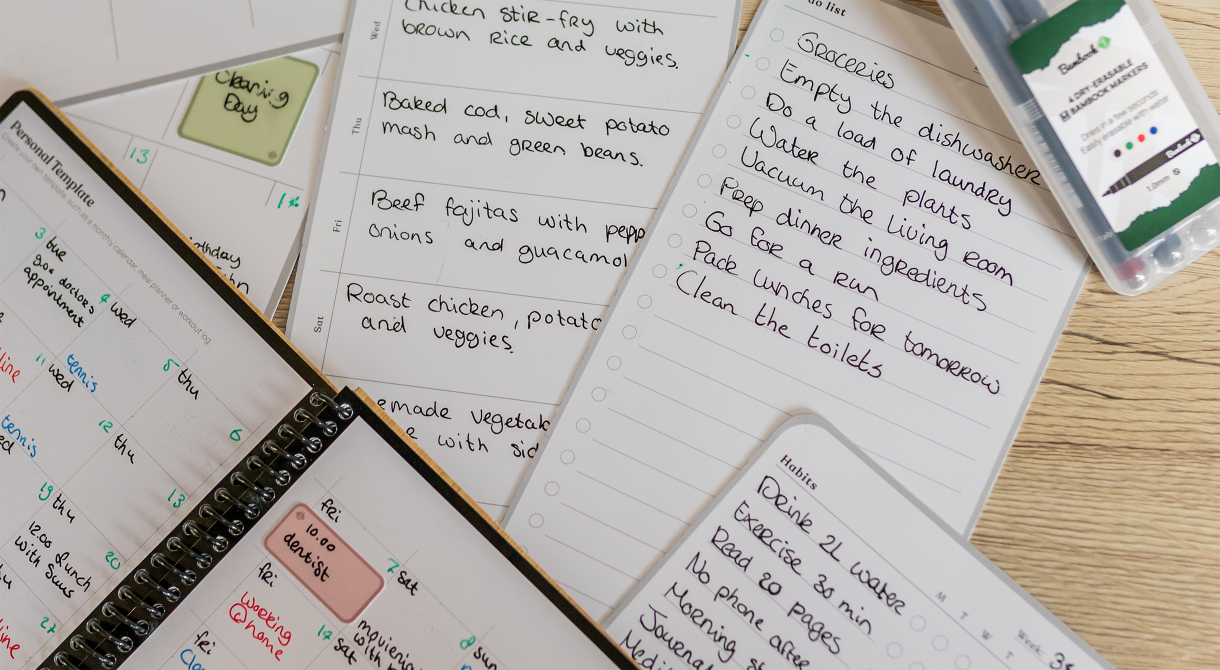 Cleaning
Day
13
14
Personal Template
Create your own template, such as a monthly calendar, meal planner or workout log
3 tue
gas doctors
appointment
4 wed
5 thu
6
11 wed
tennis
12 thu
13
tennis
19 thu
12.00 lunch
with
20
27
fri
10.00
dentist
7 sat
fri
working
@home
fri
sat
8 sun
Wed
Chicken stir-fry with
brown rice and veggies.
Thu
Baked cod, sweet potato
mash and green beans.
Fri
Beef fajitas with pepp
onions and guacamol
Sat
Roast chicken, potato
and veggies.
emade vegetab
with sid
do list
Groceries
Empty the dishwasher
Do a load of laundry
Water the plants
Vacuum the living room
Prep dinner ingredients
Go for a run
Pack lunches for tomorrow
Clean the toilets
Bambook
4 DRY-ERASABLE
BAMBOOK MARKERS
Dries in a few seconds
Easily erasable with water
Bambook
1.0mm
Habits
Week:
M T W T
Drink 2L water
Exercise 30 min
Read 20 pages
No phone after
Morning
Journal